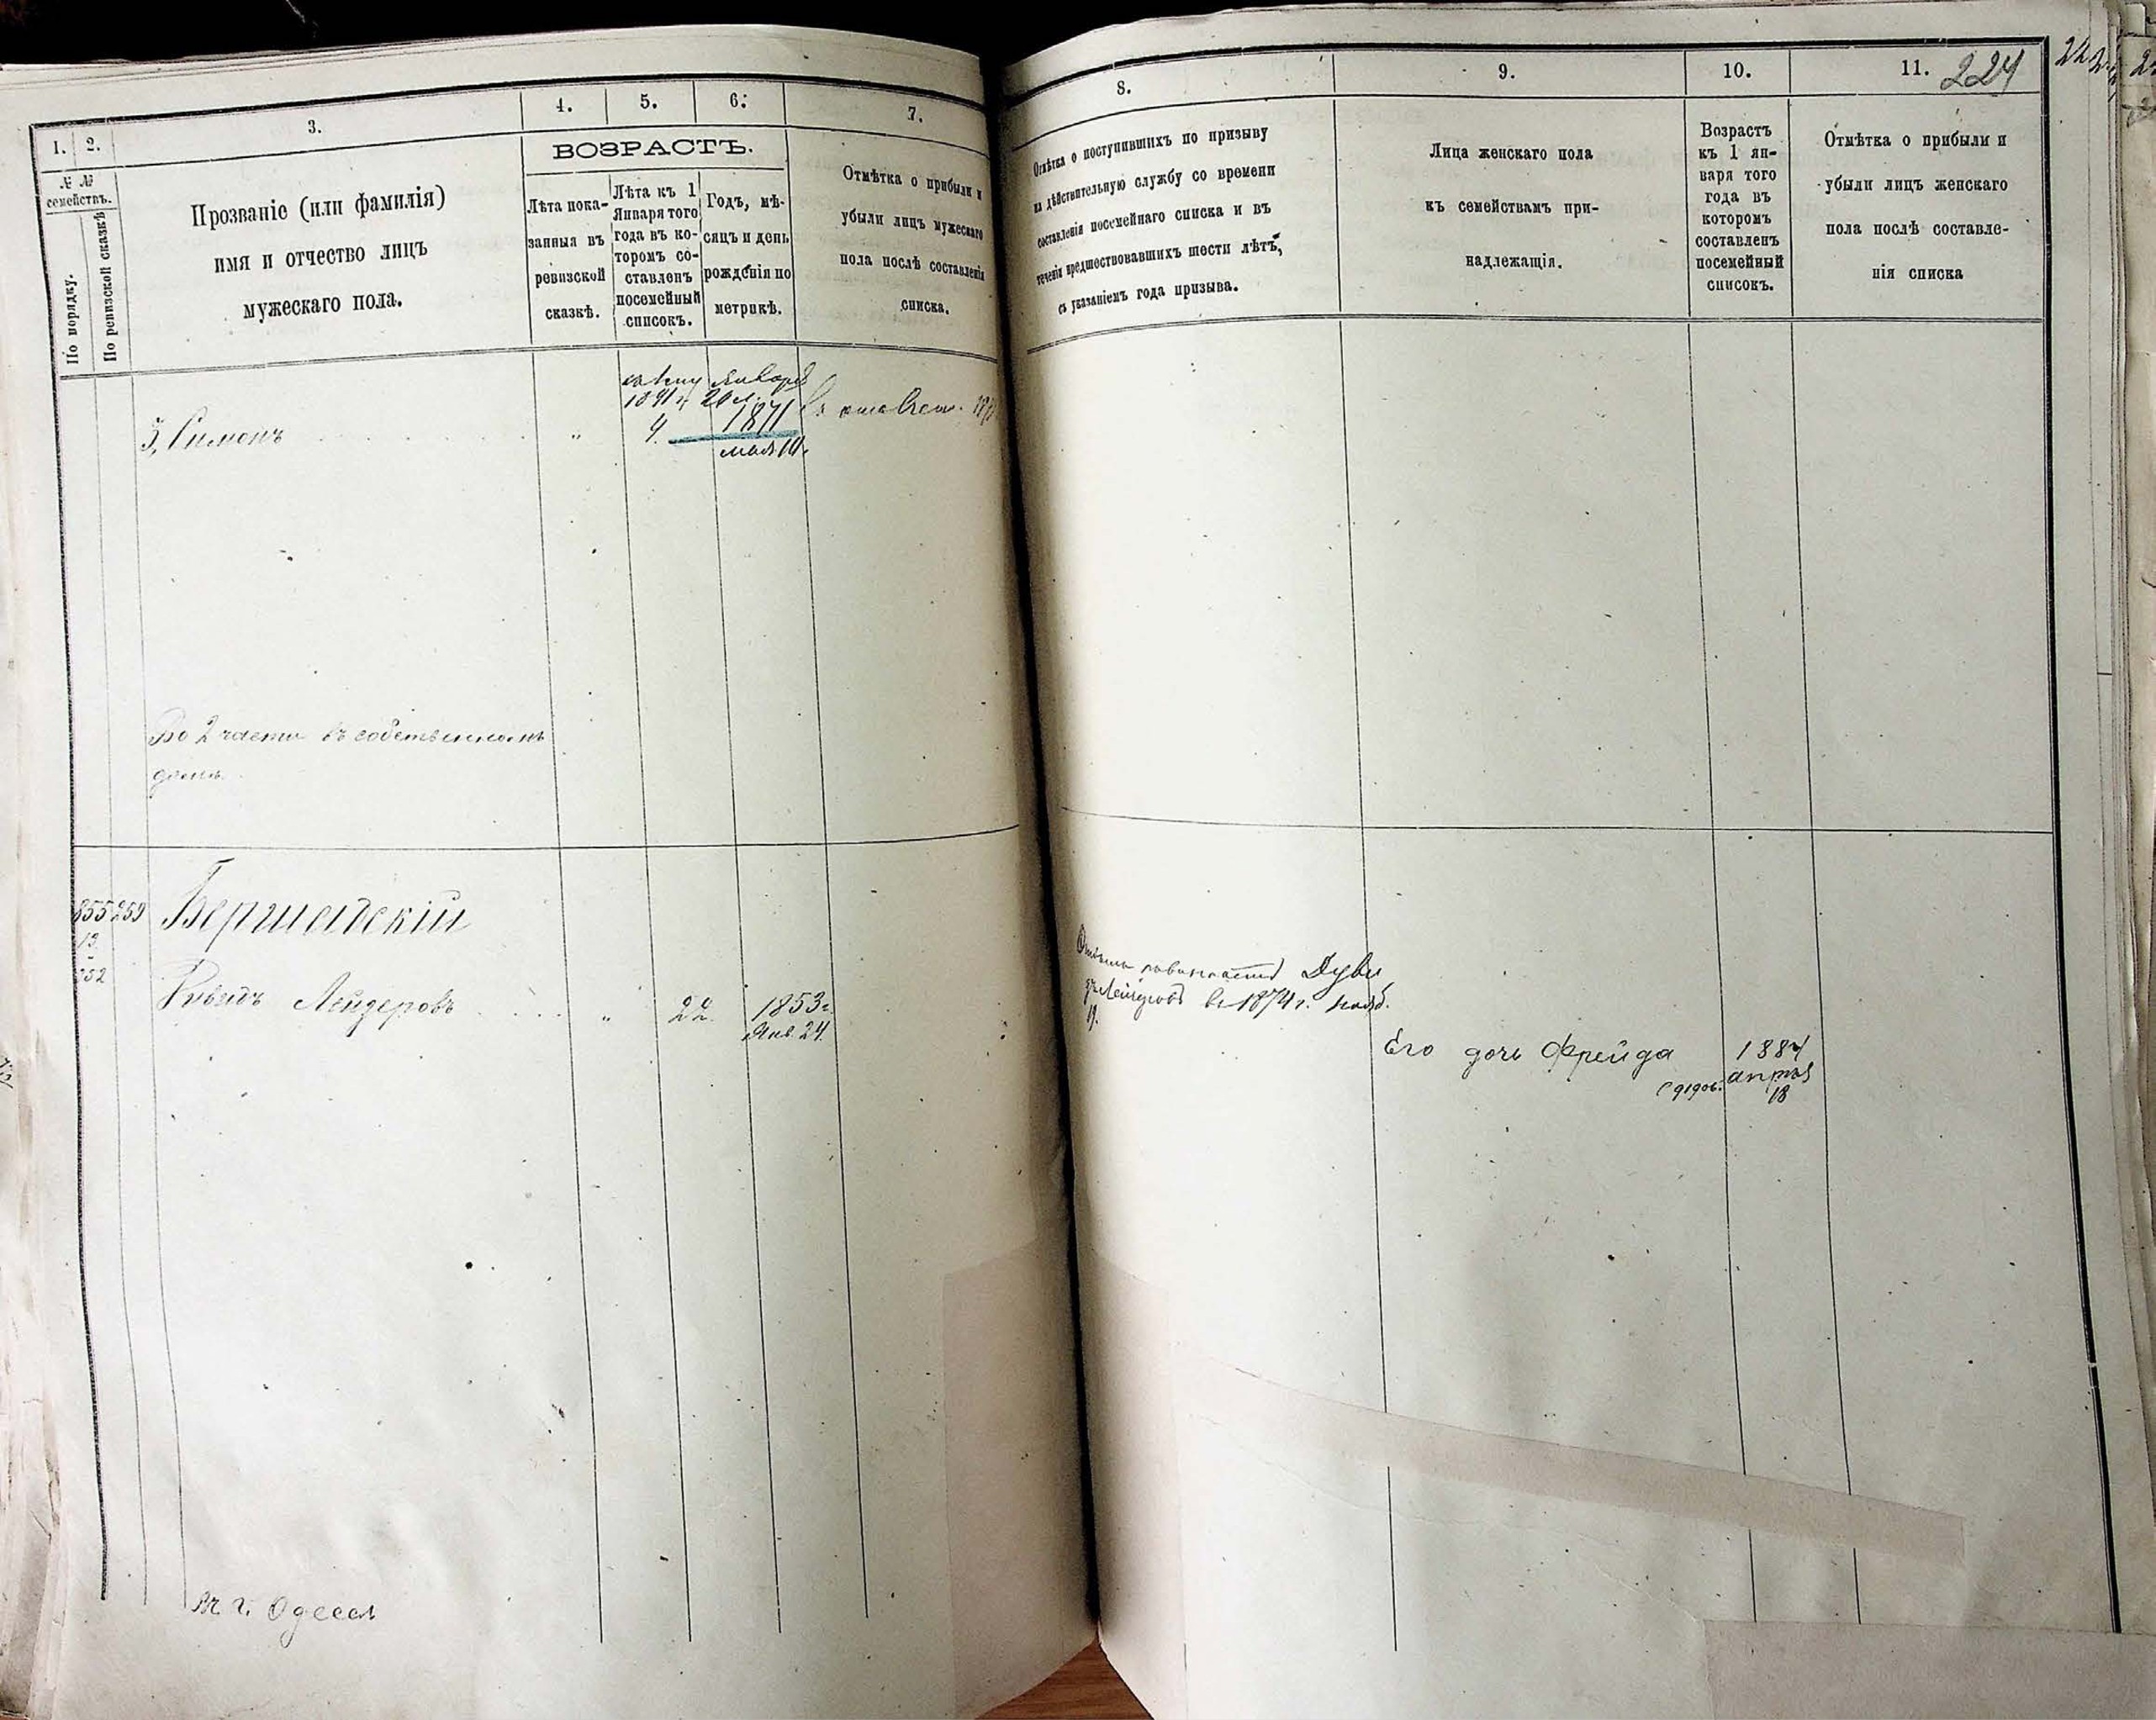 1. 2. 3. 4. 5. 6. 7.
№ №
семействъ.
По порядку.
По ревизской сказкѣ
Прозваніе (или фамилія)
имя и отчество лицъ
мужескаго пола.
ВОЗРАСТЪ.
Лѣта пока-
занныя въ
ревизской
сказкѣ.
Лѣта къ 1
Января того
года въ ко-
торомъ со-
ставленъ
посемейный
списокъ.
Годъ, мѣ-
сяцъ и день
рожденія по
метрикѣ.
Отмѣтка о прибыли и
убыли лицъ мужескаго
пола послѣ составленія
списка.
3, Симонъ
"
4.
1871
мая 14.
Во 2 части въ собственномъ
домѣ
855 259
Бершадскій
Лейзеровъ
"
22.
1853 г.
Янв. 24.
въ г. Одессѣ
8. 9. 10. 11.
224
Отмѣтка о поступившихъ по призыву
на дѣйствительную службу со времени
составленія посемейнаго списка и въ
теченіи предшествовавшихъ шести лѣтъ,
съ указаніемъ года призыва.
Лица женскаго пола
къ семействамъ при-
надлежащія.
Возрастъ
къ 1 ян-
варя того
года въ
которомъ
составленъ
посемейный
списокъ.
Отмѣтка о прибыли и
убыли лицъ женскаго
пола послѣ составле-
нія списка
въ 1874 г.
19.
Его дочь Фрейда
1884
апрѣля
18